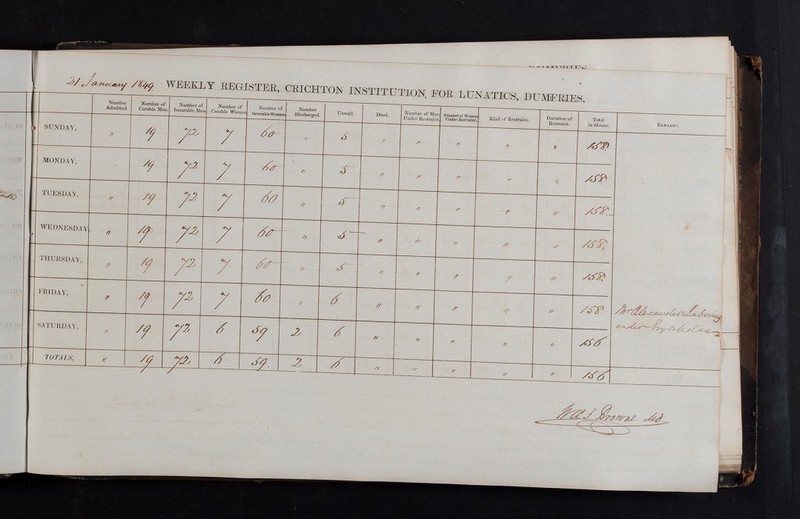 21 January 1849 WEEKLY REGISTER, CRICHTON INSTITUTION, FOR LUNATICS, DUMFRIES.
Number Admitted. Number of Curable Men. Number of Incurable Men Number of Curable Women Number of Incurable Women Number Discharged. Unwell. Dead. Number of Men Under Restraint. Number of Women Under Restraint. Kind of Restraint. Duration of Restraint. Total in House. REMARKS.
SUNDAY, " 19 72 7 60 " 5 " " " " " 158
MONDAY, 19 72 7 60 " 5 " " " " " 158
TUESDAY, " 19 72 7 60 " 5 " " " " " 158
WEDNESDAY, " 19 72 7 60 " 5 " " " " " 158
THURSDAY, " 19 72 7 60 " 5 " " " " " 158
FRIDAY, " 19 72 7 60 " 6 " " " " " 158 Mr Alexander Labouring
SATURDAY, " 19 72 6 59 2 6 " " " " " 156 under
TOTALS, " 19 72 6 59. 2 6 " " " " " 156
W A F Browne MD